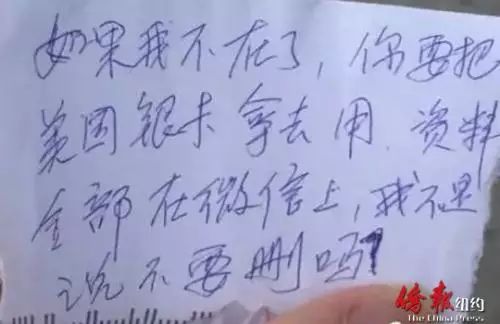 如果我不在了,你要把
美国银卡拿去用.资料
全部在微信上,我不是
说不要删吗
侨报纽约
The China Press